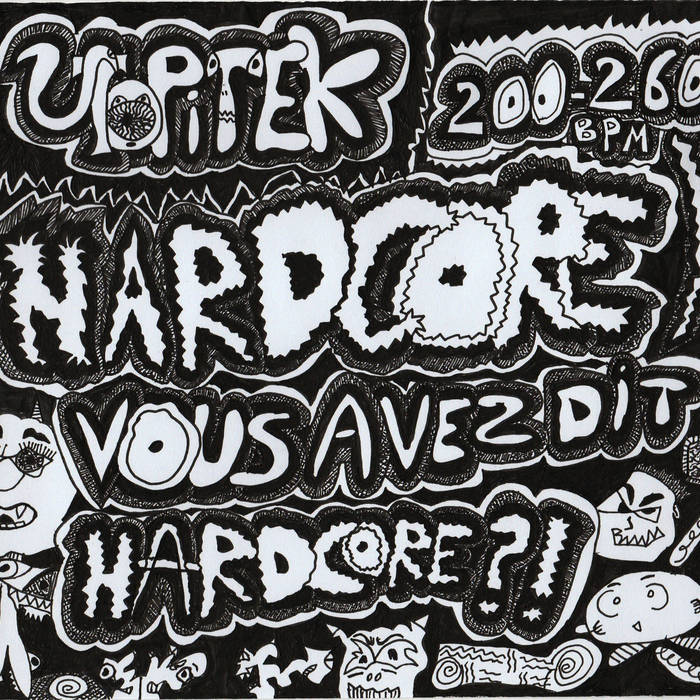 UTOPITEK
200-260
BPM
HARDCORE
VOUS AVEZ DIT
HARDCORE?!